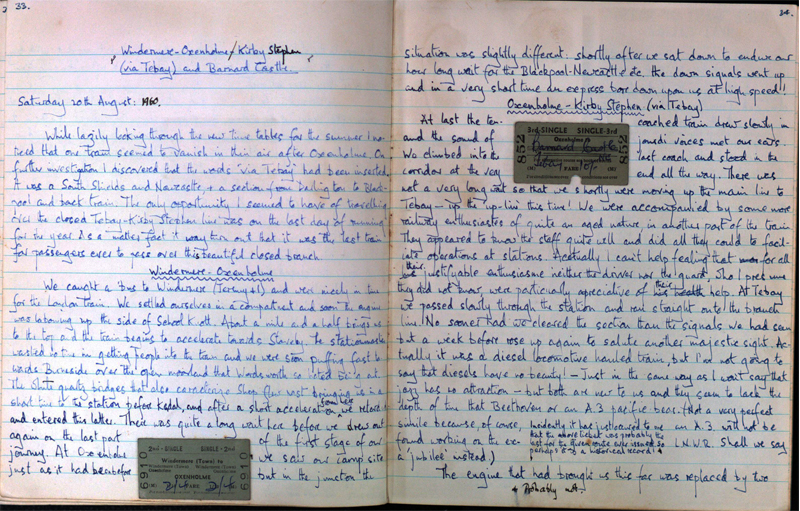 33.
Windermere-Oxenholme/Kirby Stephen
(via Tebay) and Barnard Castle.
Saturday 20th August: 1960.
While lazily looking through the new time tables for the summer I no-
ticed that one train seemed to vanish in thin air after Oxenholme. On
further investigation I discovered that the words 'via Tebay' had been inserted.
It was a South Shields and Newcastle + a section from Darlington to Black-
pool and back train. The only opportunity I seemed to have of travelling
over the closed Tebay-Kirby Stephen line was on the last day of running
for the year. As a matter fact it may turn out that it was the last train
for passengers ever to pass over this beautiful closed branch.
Windermere-Oxenholme
We caught a bus to Windermere (Jeremy + I) and were nicely in time
for the London train. We settled ourselves in a compartment and soon the engine
was labouring up the side of School Knott. About a mile and a half brings us
to the top and the train begins to accelerate towards Staveley. The stationmaster
wasted no time in getting people into the train and we were soon puffing fast to-
wards Burneside over the open moorland that Wordsworth so hated being cut.
The slate quarry bridges that also
short time to the station before Kendal, and after a short acceleration from here we relaxed
and entered this latter. There was quite a long wait here before we drew out
again on the last part of the first stage of our
journey. At Oxenholme we saw our camp site
just as it had been before but in the junction the
6910 2nd - SINGLE SINGLE - 2nd 6910
Windermere (Town) to
OXENHOLME
(M) 2/4 FARE 2/4 (M)
34.
situation was slightly different: shortly after we sat down to endure our
hour long wait for the Blackpool-Newcastle etc. the down signals went up
and in a very short time an express bore down upon us at high speed!
Oxenholme-Kirby Stephen (via Tebay)
At last the ten-coached train drew slowly in
and the sound of voices met our ears.
We climbed into the last coach and stood in the
corridor at the very end all the way. There was
not a very long wait so that we shortly were moving up the main line to
Tebay - up the up-line this time! We were accompanied by some more
railway enthusiastes of quite an aged nature, in another part of the train.
They appeared to know the staff quite well and did all they could to facil-
iate operations at stations. Actually I can't help feeling that for all
their justifyable enthusiasme neither the driver nor the guard, who I presume
they did not know, were particularly apreciative of their help. At Tebay
we passed slowly through the station and ran straight onto the branch
line! No sooner had we cleared the section than the signals we had seen
but a week before rose up again to salute another majestic sight. Ac-
tually it was a diesel locomotive hauled train, but I'm not going to
say that diesels have no beauty! - Just in the same way as I wont say that
jazz has no attraction - but both are new to us and they seem to lack the
depth of time that Beethoven or an A.3 pacific bear. (Not a very perfect
simile because, of course, an A.3 will not be
found working on the ex- L.N.W.R. Shall we say
a 'jubilee' instead.)
Incidently it has just occured to me
that the above ticket was probably the
last on the given route ever issued so
perhaps it is a historical record!
The engine that had brought us this far was replaced by two
Probably not.
852 3rd-SINGLE SINGLE-3rd 852
Oxenholme to
Barnard Castle
Tebay
(M) FARE (M)